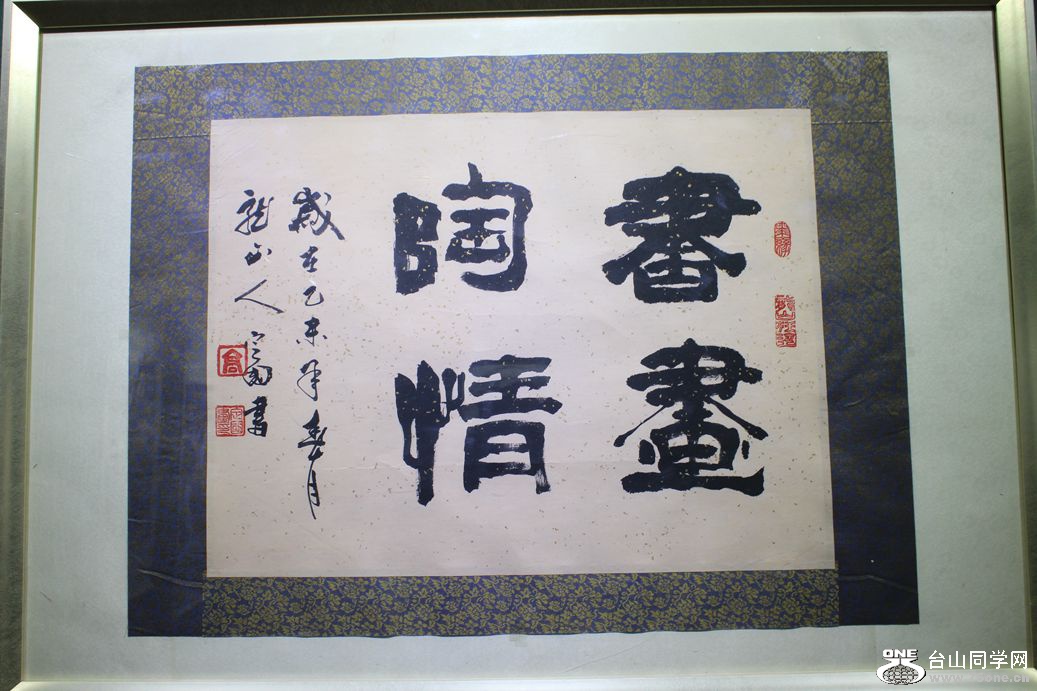 書畫
陶情
歲在乙未年春月
龍山人
書
ONE
台山同学网